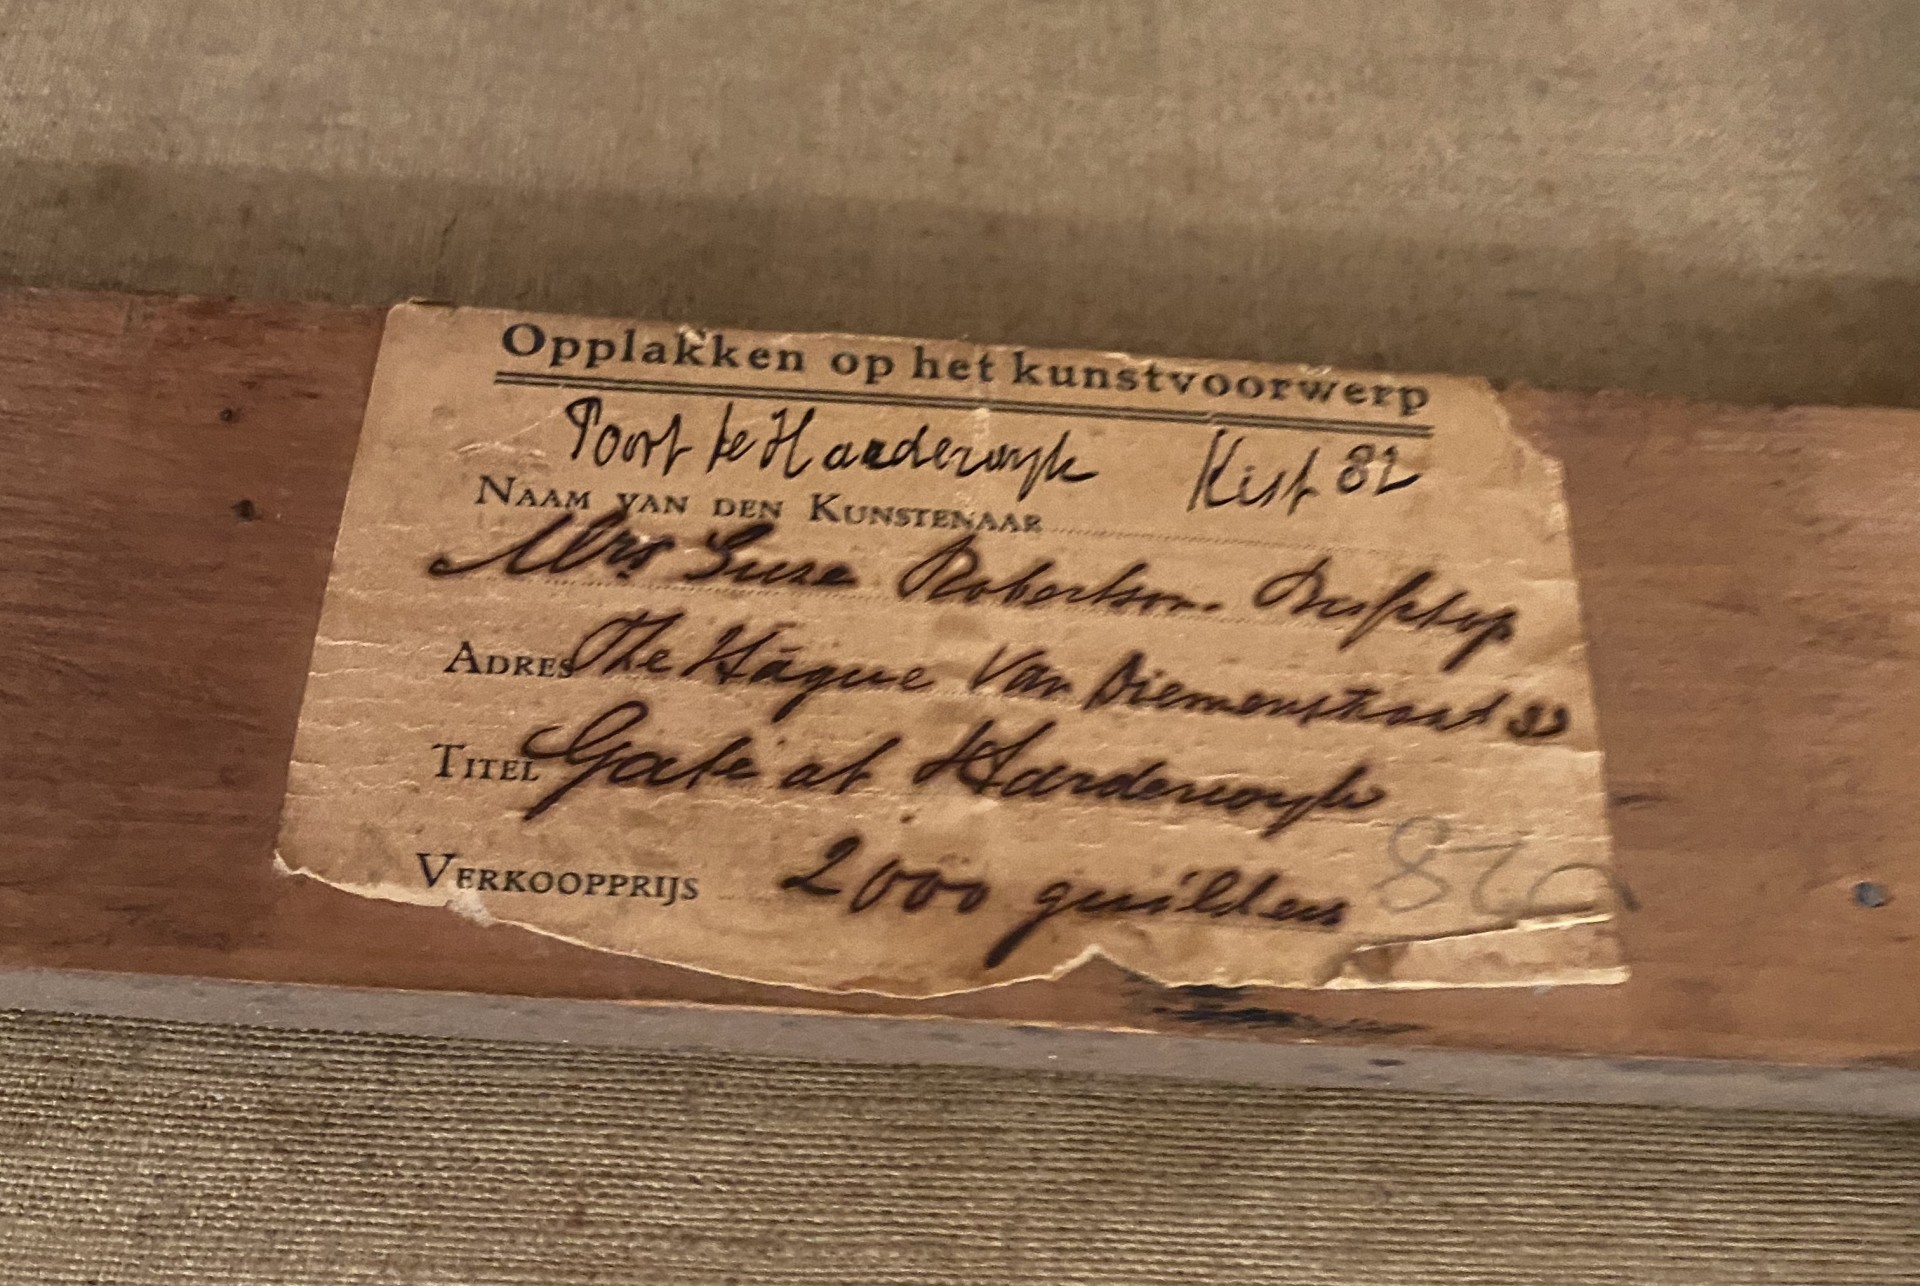 Opplakken op het kunstvoorwerp
Poort te Harderwyk Kist 82
NAAM VAN DEN KUNSTENAAR
Mrs Suze Robertson.
ADRES The Hague Van Diemenstraat
TITEL Gate at Harderwyk
VERKOOPPRIJS 2000 guilders